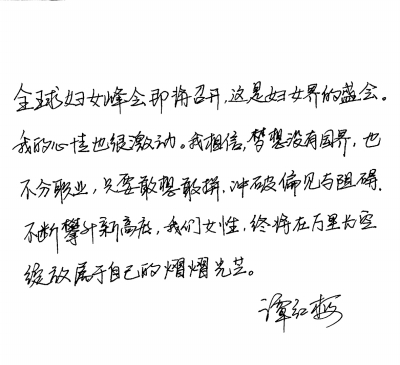 全球妇女峰会即将召开,这是妇女界的盛会。
我的心情也很激动。我相信,梦想没有国界,也
不分职业,只要敢想敢拼,冲破偏见与阻碍,
不断攀升新高度,我们女性,终将在万里长空
绽放属于自己的熠熠光芒。
谭红梅